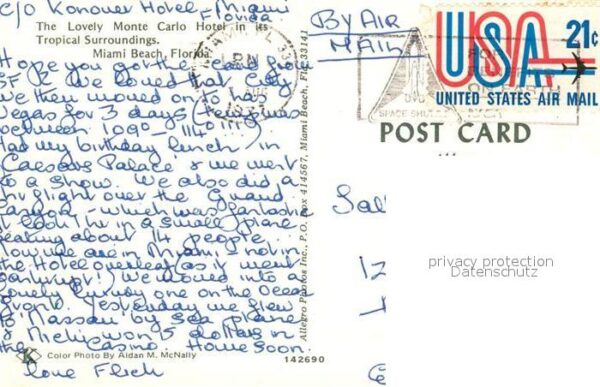 c/o Konover Hotel, Miami
Florida
The Lovely Monte Carlo Hotel in its
Tropical Surroundings.
Miami Beach, Florida
Hope you got the card from
SF & we loved that City
we then moved on to Las
Vegas for 3 days (temp was
between 109° - 114°)
Had my birthday lunch in
Caesars Palace & we went
to a show. We also did a
flight over the Grand
Canyon - which was fantastic
in a small plane
seating about 14 people.
are in Miami - not in
the Hotel overleaf (as it went
bankrupt) We moved into a
lovely one on the Ocean
front. Yesterday we flew
to Nassau by sea plane
& won 5 dollars in
the Casino. Home soon.
Love
K Color Photo By Aidan M. McNally
142690
Allegro Photos Inc., P.O. Box 414567, Miami Beach, Fla. 33141
By AIR
MAIL
PM
SPACE SHUTTLE
USA 21¢
UNITED STATES AIR MAIL
POST CARD
Sal
12
privacy protection
Datenschutz